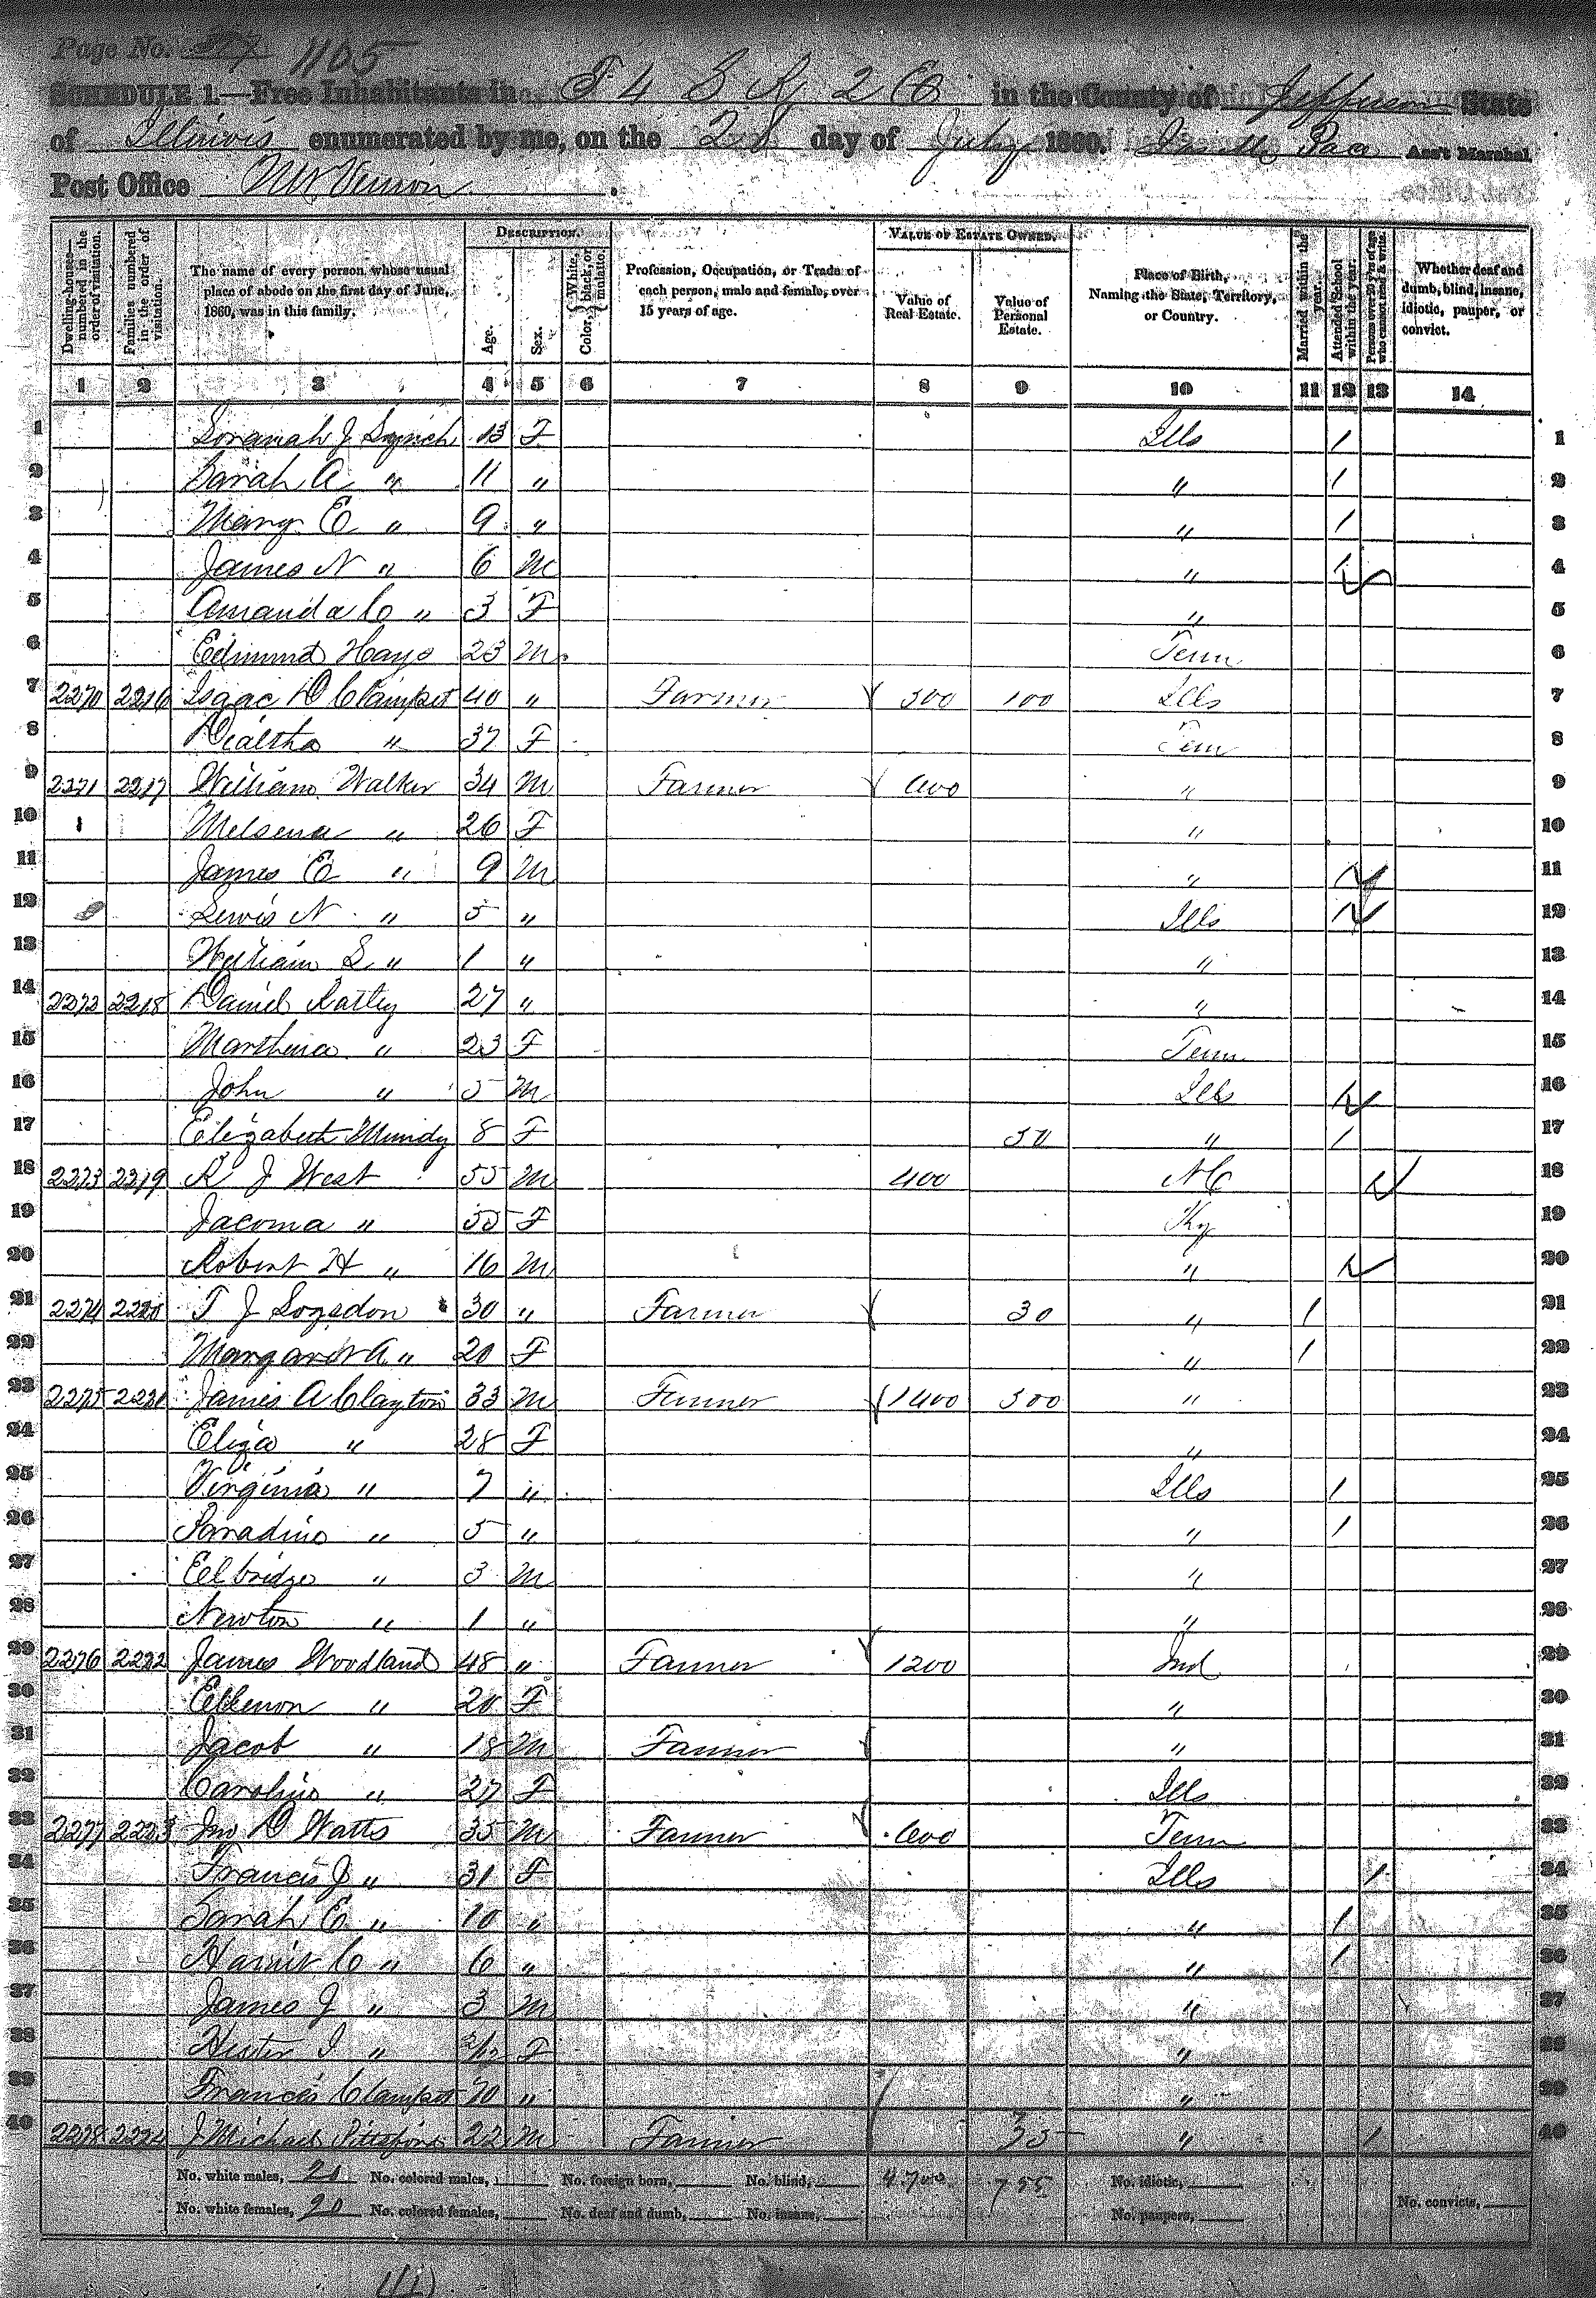 Page No. 1105
SCHEDULE 1.—Free Inhabitants in T 4 S R 2 E in the County of Jefferson State
of Illinois enumerated by me, on the 28 day of July 1860. Pace Ass't Marshal
Post Office Mt Vernon
Dwelling-houses—numbered in the order of visitation.
Families numbered in the order of visitation.
The name of every person whose usual place of abode on the first day of June, 1860, was in this family.
DESCRIPTION.
Age.
Sex.
Color, { White, black, or mulatto.
Profession, Occupation, or Trade of each person, male and female, over 15 years of age.
VALUE OF ESTATE OWNED.
Value of Real Estate.
Value of Personal Estate.
Place of Birth, Naming the State, Territory, or Country.
Married within the year.
Attended School within the year.
Persons over 20 y'rs of age who cannot read & write.
Whether deaf and dumb, blind, insane, idiotic, pauper, or convict.
1 2 3 4 5 6 7 8 9 10 11 12 13 14
1 J Lynch 13 F Ills 1 1
2 Sarah A " 11 " " 1 2
3 Mary E " 9 " " 1 3
4 James N " 6 M " 1 4
5 Amanda C " 3 F " 5
6 Edmund Hays 23 M Tenn 6
7 2270 2216 Isaac D Clampet 40 " Farmer 300 100 Ills 7
8 " 37 F Tenn 8
9 2271 2217 William Walker 34 M Farmer 600 " 9
10 Melsena " 26 F " 10
11 James E " 9 M " 11
12 Lewis N " 5 " Ills 12
13 William L " 1 " " 13
14 2272 2218 Daniel 27 " " 14
15 Marthena " 23 F Tenn 15
16 John " 5 M Ills 16
17 Elizabeth Mundy 8 F 50 " 1 17
18 2273 2219 R J West 55 M 400 NC 18
19 Jacoma " 55 F Ky 19
20 Robert H " 16 M " 20
21 2274 2220 T J Logsdon 30 " Farmer 30 " 1 21
22 Margaret A " 20 F " 1 22
23 2275 2221 James A Clayton 33 M Farmer 1400 300 " 23
24 Eliza " 28 F " 24
25 Virginia " 7 " Ills 1 25
26 " 5 " " 1 26
27 Elbridge " 3 M " 27
28 Newton " 1 " " 28
29 2276 2222 James Woodland 48 " Farmer 1200 Ind 29
30 Ellenor " 20 F " 30
31 Jacob " 18 M Farmer " 31
32 Caroline " 27 F Ills 32
33 2277 2223 Jno D Watts 35 M Farmer 600 Tenn 33
34 Francis J " 31 F Ills 1 34
35 Sarah E " 10 " " 1 35
36 Harriet C " 6 " " 1 36
37 James J " 3 M " 37
38 Hester I " F " 38
39 Frances Clampet 70 " " 39
40 2278 2224 J Michael 22 M Farmer 35 " 1 40
No. white males, No. colored males, No. foreign born, No. blind, 4700 755 No. idiotic,
No. white females, 20 No. colored females, No. deaf and dumb, No. insane, No. paupers, No. convicts,